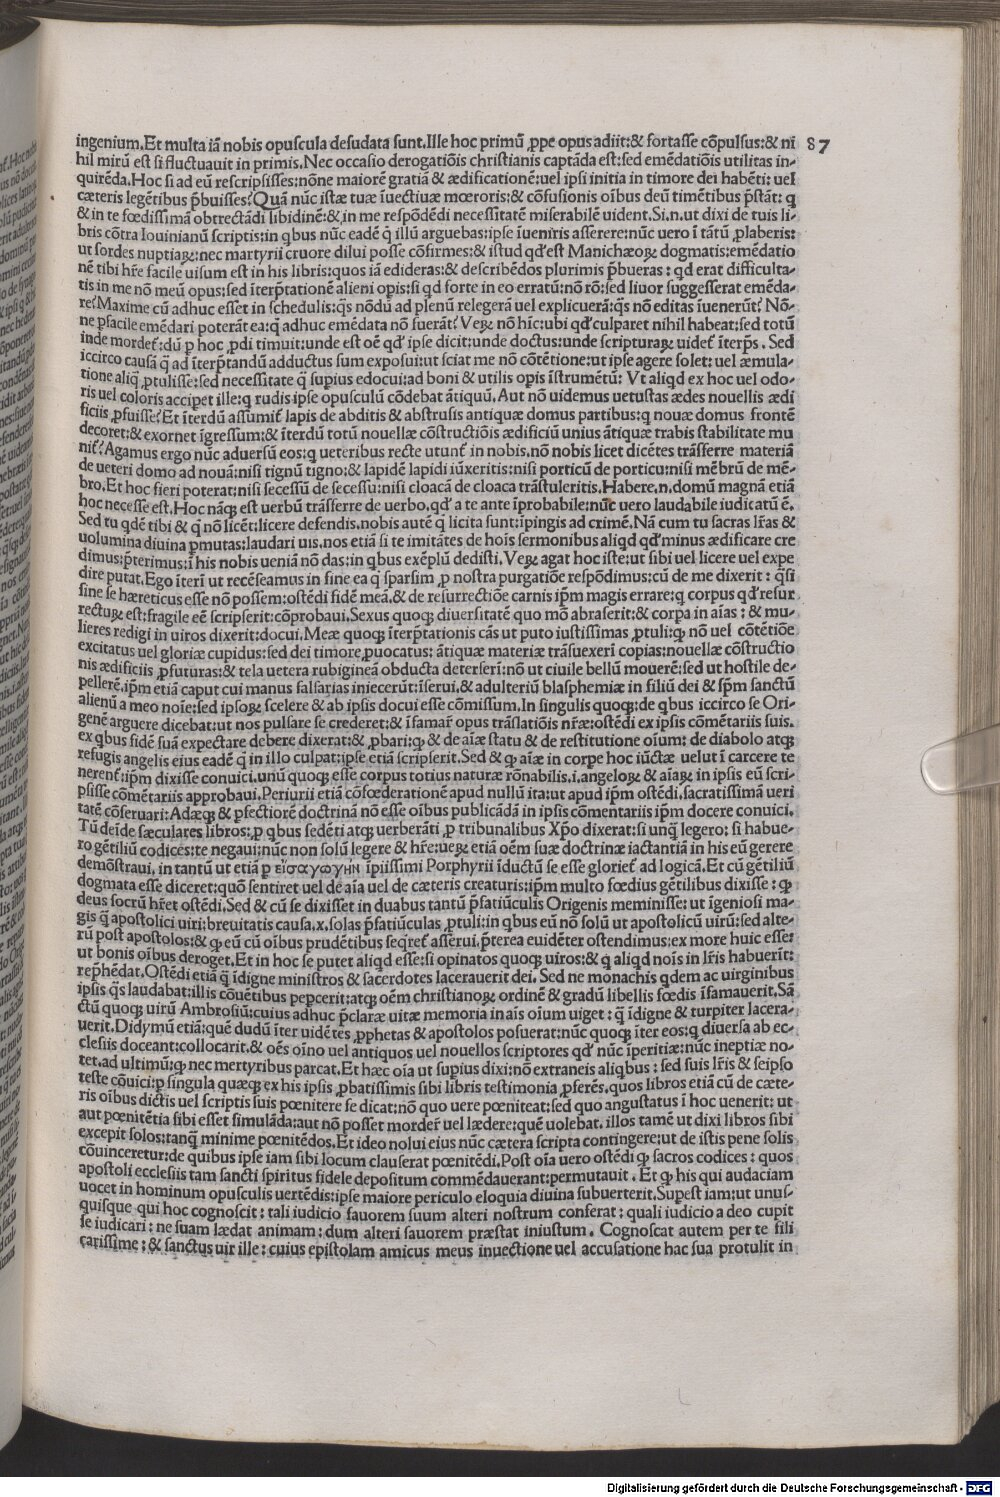 ingenium.Et multa iā nobis opuscula desudata sunt.Ille hoc primū ꝓpe opus adiit:& fortasse cōpulsus:& ni 87
hil mirū est si fluctuauit in primis.Nec occasio derogatiōis christianis captāda est:sed emēdatiōis utilitas in-
quirēda.Hoc si ad eū rescripsisses:nōne maiorē gratiā & ædificationē:uel ipsi initia in timore dei habēti: uel
cæteris legētibus p̄buisses?Quā nūc istæ tuæ īuectiuæ mœroris:& cōfusionis oībus deū timētibus p̄stāt: q
& in te fœdissimā obtrectādi libidinē:& in me respōdēdi necessitatē miserabilē uident.Si.n.ut dixi de tuis li-
bris cōtra Iouinianū scriptis:in qbus nūc eadē q̄ illū arguebas:ipse īueniris asserere:nūc uero ī tātū ꝓlaberis:
ut sordes nuptiaꝝ:nec martyrii cruore dilui posse cōfirmes:& istud qd' est Manichæoꝝ dogmatis:emēdatio
nē tibi hr̄e facile uisum est in his libris:quos iā edideras:& describēdos plurimis p̄bueras : qd erat difficulta-
tis in me nō meū opus:sed īterp̄tationē alieni opis:si qd forte in eo erratū:nō rō:sed liuor suggesserat emēda-
re?Maxime cū adhuc esset in schedulis:q̄s nōdū ad plenū relegerā uel explicuerā:q̄s nō editas īuenerūt? Nō-
ne ꝓfacile emēdari poterāt ea:q̄ adhuc emēdata nō fuerāt? Veꝝ nō hīc:ubi qd' culparet nihil habeat:sed totū
inde mordet̄:dū ꝑ hoc ꝓdi timuit:unde est oē qd' ipse dicit:unde doctus:unde scripturaꝝ uidet̄ īterp̄s . Sed
iccirco causā q̄ ad īterp̄tandū adductus sum exposui:ut sciat me nō cōtētione:ut ipse agere solet: uel æmula-
tione aliq̄ ꝓtulisse:sed necessitate q̄ supius edocui:ad boni & utilis opis īstrumētū: Vt aliqd ex hoc uel odo-
ris uel coloris accipet ille:q rudis ipse opusculū cōdebat ātiquū. Aut nō uidemus uetustas ædes nouellis ædi
ficiis ꝓfuisse?Et īterdū assumit̄ lapis de abditis & abstrusis antiquæ domus partibus:q nouæ domus frontē
decoret:& exornet īgressum:& īterdū totū nouellæ cōstructiōis ædificiū unius ātiquæ trabis stabilitate mu
nit̄?Agamus ergo nūc aduersū eos:q ueteribus recte utunt̄ in nobis.nō nobis licet dicētes trāsferre materiā
de ueteri domo ad nouā:nisi tignū tigno:& lapidē lapidi iūxeritis:nisi porticū de porticu:nisi mēbrū de mē-
bro.Et hoc fieri poterat:nisi secessū de secessu:nisi cloacā de cloaca trāstuleritis.Habere.n.domū magnā etiā
hoc necesse est.Hoc nāq; est uerbū trāsferre de uerbo.qd' a te ante īprobabile:nūc uero laudabile iudicatū ē.
Sed tu qdē tibi & q̄ nō licēt:licere defendis.nobis autē q̄ licita sunt:īpingis ad crimē.Nā cum tu sacras lr̄as &
uolumina diuina p̄mutas:laudari uis.nos etiā si te imitātes de hoīs sermonibus aliqd qd' minus ædificare cre
dimus:p̄terimus:ī his nobis ueniā nō das:in qbus exēplū dedisti. Veꝝ agat hoc iste:ut sibi uel licere uel expe
dire putat.Ego īterī ut recēseamus in fine ea q̄ sparsim ꝓ nostra purgatiōe respōdimus:cū de me dixerit : q̄si
sine se hæreticus esse nō possem:ostēdi fidē meā.& de resurrectiōe carnis ip̄m magis errare:q corpus qd' resur
recturꝝ est:fragile eē scripserit:cōprobaui.Sexus quoq; diuersitatē quo mō abraserit:& corpa in aīas : & mu-
lieres redigi in uiros dixerit:docui.Meæ quoq; īterp̄tationis cās ut puto iustissimas ꝓtuli:ꝙ nō uel cōtētiōe
excitatus uel gloriæ cupidus:sed dei timore ꝓuocatus: ātiquæ materiæ trāsuexerī copias:nouellæ cōstructio
nis ædificiis ꝓfuturas:& tela uetera rubigineā obducta deterserī:nō ut ciuile bellū mouerē:sed ut hostile de-
pellerē.ip̄m etiā caput cui manus falsarias iniecerūt:īserui.& adulteriū blasphemiæ in filiū dei & sp̄m sanctū
alienū a meo noīe:sed ipsoꝝ scelere & ab ipsis docui esse cōmissum.In singulis quoq;:de qbus iccirco se Ori-
genē arguere dicebat:ut nos pulsare se crederet:& īfamar̄ opus trāslatiōis nr̄æ:ostēdi ex ipsis cōmētariis suis.
ex qbus fidē suā expectare debere dixerat:& ꝓbari:ꝙ & de aīæ statu & de restitutione oīum: de diabolo atq;
refugis angelis eius eadē q̄ in illo culpat:ipse etiā scripserit.Sed & ꝙ aīæ in corpe hoc iūctæ uelut ī carcere te
nerent̄:ip̄m dixisse conuici.unū quoq; esse corpus totius naturæ rōnabilis.i.angeloꝝ & aīaꝝ in ipsis eū scri-
psisse cōmētariis approbaui.Periurii etiā cōfœderationē apud nullū ita:ut apud ip̄m ostēdi.sacratissimā ueri
tatē cōseruari:Adæq; & pfectiorē doctrinā nō esse oībus publicādā in ipsis cōmentariis ip̄m docere conuici.
Tū deīde sæculares libros:ꝑ qbus sedēti atq; uerberāti ꝑ tribunalibus Xp̄o dixerat:si unq̄ legero: si habue-
ro gētiliū codices:te negaui:nūc non solū legere & hr̄e:ueꝝ etiā oēm suæ doctrinæ iactantiā in his eū gerere
demōstraui.in tantū ut etiā ꝑ εἰσαγωγὴν īpiissimi Porphyrii īductū se esse gloriet̄ ad logicā.Et cū gētiliū
dogmata esse diceret:quō sentiret uel de aīa uel de cæteris creaturis:ip̄m multo fœdius gētilibus dixisse : ꝙ
deus socrū hr̄et ostēdi.Sed & cū se dixisset in duabus tantū p̄fatiūculis Origenis meminisse: ut īgeniosi ma-
gis q̄ apostolici uiri:breuitatis causa.x.solas p̄fatiūculas ꝓtuli:in qbus eū nō solū ut apostolicū uirū:sed alte-
rū post apostolos:& ꝙ eū cū oībus prudētibus seq̄ret̄ asserui.p̄terea euidēter ostendimus:ex more huic esse:
ut bonis oībus deroget.Et in hoc se putet aliqd esse:si opinatos quoq; uiros:& q aliqd noīs in lr̄is habuerīt:
repr̄hēdat.Ostēdi etiā q̄ īdigne ministros & sacerdotes lacerauerit dei. Sed ne monachis qdem ac uirginibus
ipsis q̄s laudabat:illis cōuētibus pepcerit:atq; oēm christianoꝝ ordinē & gradū libellis fœdis īfamauerit.Sā
ctū quoq; uirū Ambrosiū:cuius adhuc p̄claræ uitæ memoria in aīs oīum uiget : q̄ īdigne & turpiter lacera-
uerit.Didymū etiā:quē dudū īter uidētes ꝓphetas & apostolos posuerat:nūc quoq; īter eos:q diuersa ab ec-
clesiis doceant:collocarit.& oēs oīno uel antiquos uel nouellos scriptores qd' nūc īperitiæ:nūc ineptiæ no-
tet.ad ultimū:ꝙ nec mertyribus parcat.Et hæc oīa ut supius dixi:nō extraneis aliqbus : sed suis lr̄is & seipso
teste cōuici:ꝑ singula quæq; ex his ipsis ꝓbatissimis sibi libris testimonia ꝓferēs.quos libros etiā cū de cæte-
ris oībus dictis uel scriptis suis pœnitere se dicat:nō quo uere pœniteat:sed quo angustatus ī hoc uenerit: ut
aut pœnitētia sibi esset simulāda:aut nō posset morder̄ uel lædere:quē uolebat. illos tamē ut dixi libros sibi
excepit solos:tanq̄ minime pœnitēdos.Et ideo nolui eius nūc cætera scripta contingere:ut de istis pene solis
cōuinceretur:de quibus ipse iam sibi locum clauserat pœnitēdi.Post oīa uero ostēdi ꝙ sacros codices : quos
apostoli ecclesiis tam sancti spiritus fidele depositum commēdauerant:permutauit . Et ꝙ his qui audaciam
uocet in hominum opusculis uertēdis:ipse maiore periculo eloquia diuina subuerterit.Supest iam:ut unus-
quisque qui hoc cognoscit : tali iudicio fauorem suum alteri nostrum conferat : quali iudicio a deo cupit
se iudicari : ne suam lædat animam: dum alteri fauorem præstat iniustum . Cognoscat autem per te fili
carissime : & sanctus uir ille : cuius epistolam amicus meus inuectione uel accusatione hac sua protulit in
Digitalisierung gefördert durch die Deutsche Forschungsgemeinschaft - DFG